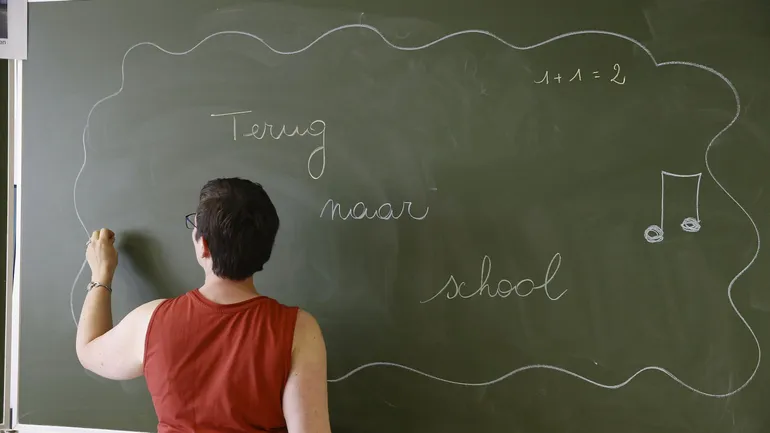 1 + 1 = 2
Terug
naar
school